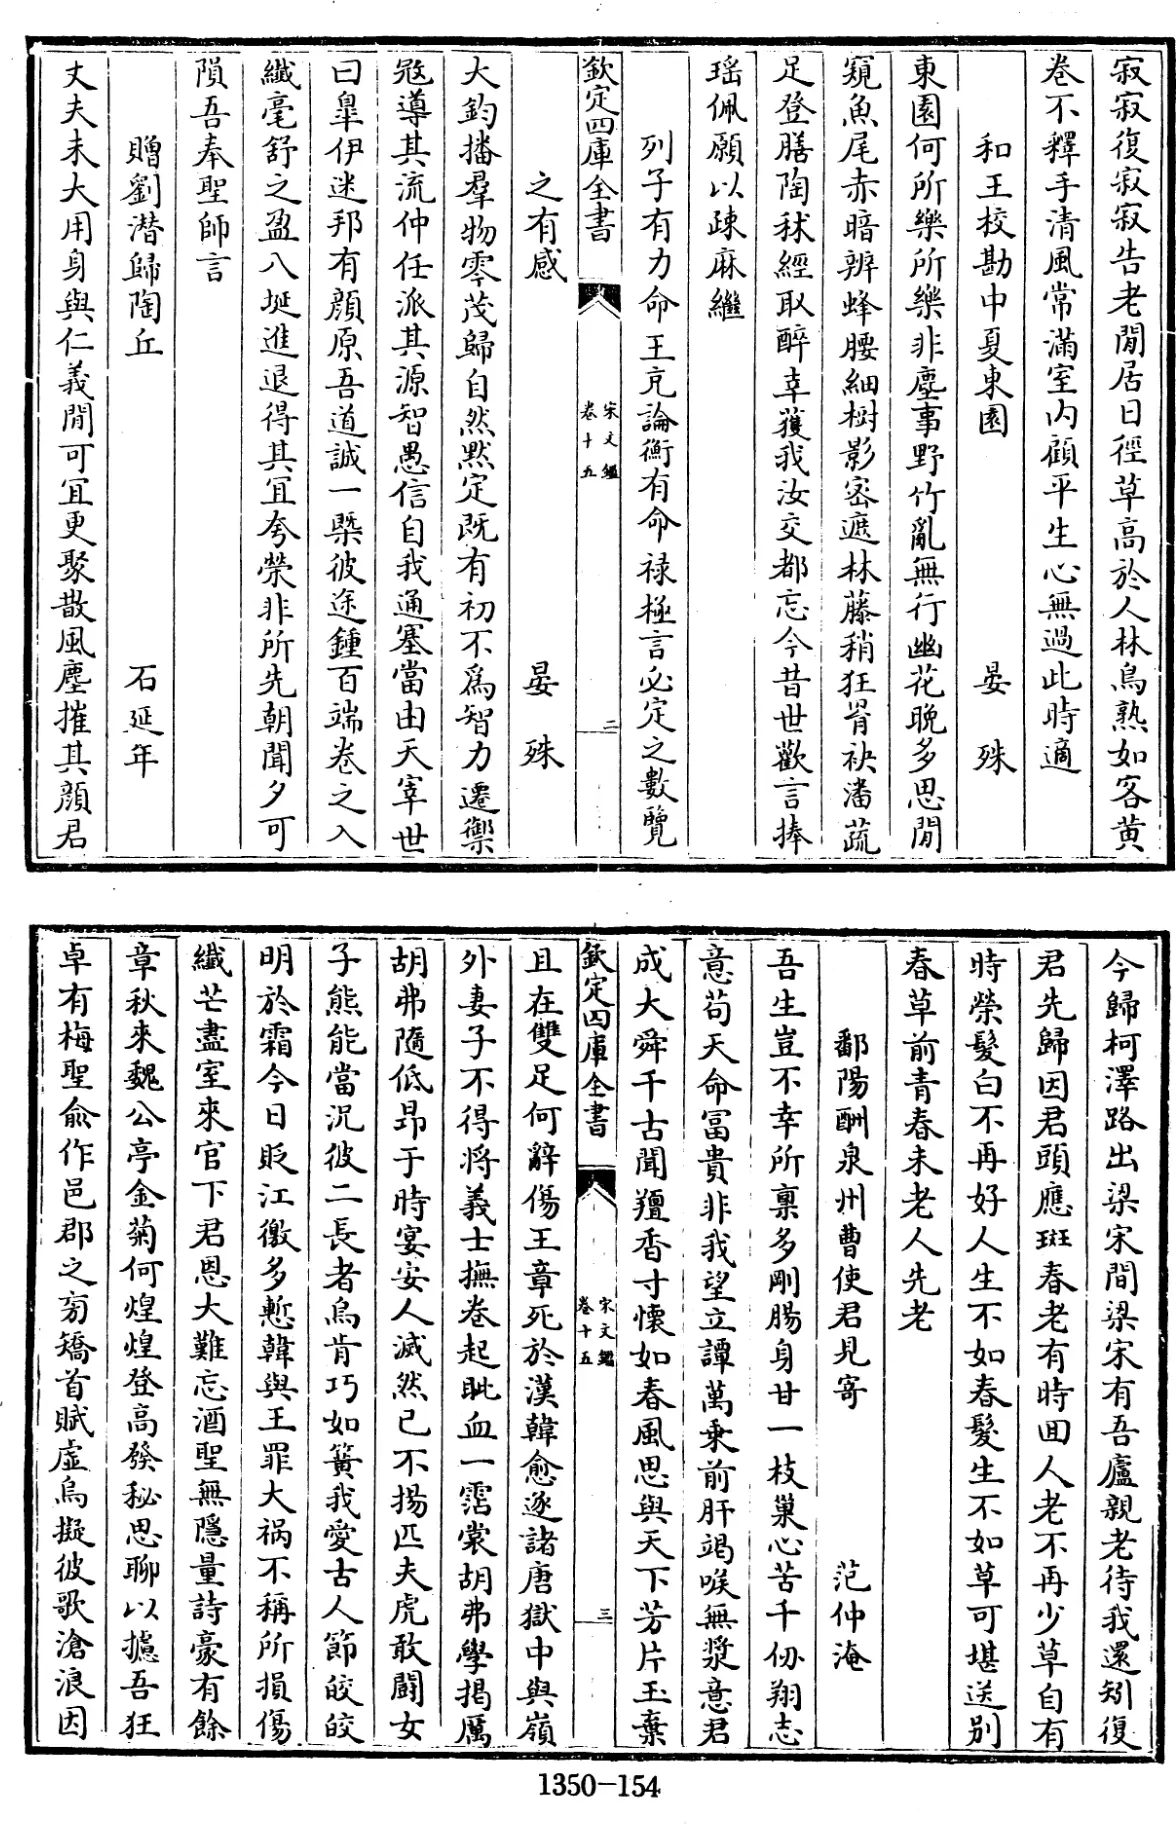 寂寂復寂寂告老閒居日徑草高於人林鳥熟如客黄
卷不釋手清風常滿室内顧平生心無過此時適
和王校勘中夏東園 晏殊
東園何所樂所樂非塵事野竹亂無行幽花晚多思閒
窺魚尾赤暗辨蜂腰細樹影密遮林藤稍狂罥袂潘蔬
足登膳陶秫經取醉幸獲我汝交都忘今昔世歡言捧
瑶佩願以疎麻繼
列子有力命王充論衡有命禄極言必定之數覽
欽定四庫全書 宋文鑑 卷十五 二
之有感 晏殊
大鈞播羣物零茂歸自然黙定既有初不為智力遷禦
冦導其流仲任派其源智愚信自我通塞當由天宰世
曰臯伊迷邦有顔原吾道誠一槩彼途鍾百端卷之入
纖毫舒之盈八埏進退得其冝夸榮非所先朝聞夕可
隕吾奉聖師言
贈劉潛歸陶丘 石延年
丈夫未大用身與仁義閒可冝更聚散風塵摧其顔君
今歸柯澤路出梁宋間梁宋有吾廬親老待我還矧復
君先歸因君頭應斑春老有時回人老不再少草自有
時榮髮白不再好人生不如春髮生不如草可堪送别
春草前青春未老人先老
鄱陽酬泉州曹使君見寄 范仲淹
吾生豈不幸所禀多剛腸身甘一枝巢心苦千仞翔志
意苟天命冨貴非我望立譚萬乗前肝竭喉無漿意君
成大舜千古聞羶香寸懷如春風思與天下芳片玉棄
欽定四庫全書 宋文鑑 卷十五 三
且在雙足何辭傷王章死於漢韓愈逐諸唐獄中與嶺
外妻子不得將義士撫卷起眦血一霑裳胡弗學掲厲
胡弗隨低昻于時宴安人滅然已不揚匹夫虎敢鬭女
子熊能當況彼二長者烏肯巧如簧我愛古人節皎皎
明於霜今日貶江徼多慙韓與王罪大禍不稱所損傷
纖芒盡室來官下君恩大難忘酒聖無隱量詩豪有餘
章秋来魏公亭金菊何煌煌登高發秘思聊以攄吾狂
卓有梅聖俞作邑郡之旁矯首賦虛烏擬彼歌滄浪因
1350-154